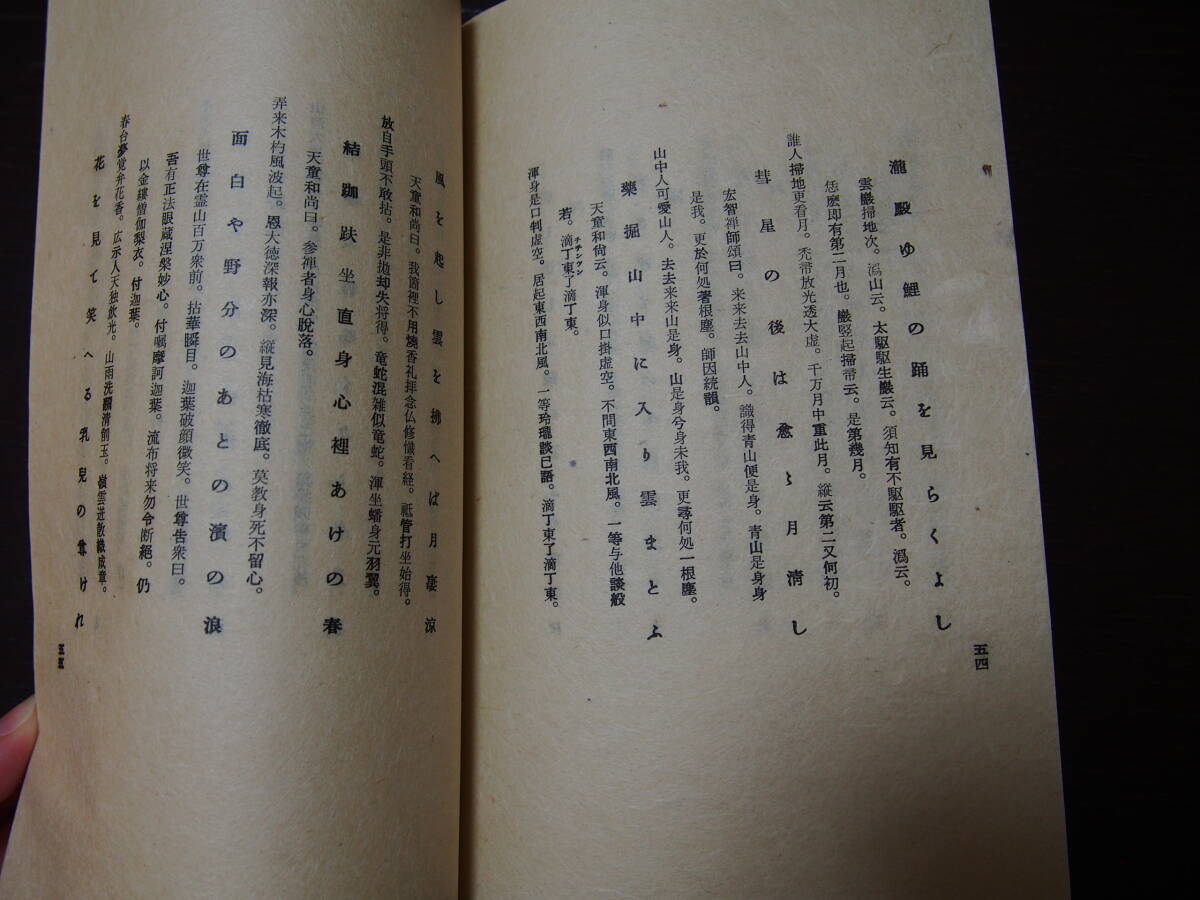 瀧毆ゆ鯉の踊を見らくよし
雲巖掃地次。潙山云。太駆駆生巖云。須知有不駆駆者。潙云。
恁麽即有第二月也。巖竪起掃帚云。是第幾月。
誰人掃地更看月。禿帚放光透大虚。千万月中重此月。縦云第二又何初。
彗星の後は愈〻月淸し
宏智禅師頌曰。来来去去山中人。識得青山便是身。青山是身身
是我。更於何処著根塵。師因統韻。
山中人可愛山人。去去来来山是身。山是身兮身未我。更尋何処一根塵。
藥掘山中に入り雲まとふ
天童和尚云。渾身似口掛虚空。不問東西南北風。一等与他談般
若。滴丁東了滴丁東。
チチンツン
渾身是口判虚空。居起東西南北風。一等玲瓏談已語。滴丁東了滴丁東。
五四
風を起し雲を拂へば月凄凉
天童和尚曰。我箇裡不用燒香礼拝念仏修懺看経。祗管打坐始得。
放自手頭不敢拈。是非抛却失将得。竜蛇混雑似竜蛇。渾坐蟠身元羽翼。
結跏趺坐直身心裡あけの春
天童和尚曰。参禅者身心脫落。
弄来木杓風波起。恩大徳深報亦深。縦見海枯寒徹底。莫教身死不留心。
面白や野分のあとの濱の浪
世尊在霊山百万衆前。拈華瞬目。迦葉破顔微笑。世尊告衆曰。
吾有正法眼蔵涅槃妙心。付嘱摩訶迦葉。流布将来勿令断絕。仍
以金縷僧伽梨衣。付迦葉。
春台夢覚弁花香。広示人天独飲光。山雨洗
清前玉。嶺雲逆散織成章。
花を見て笑へる乳兒の尊けれ
五五